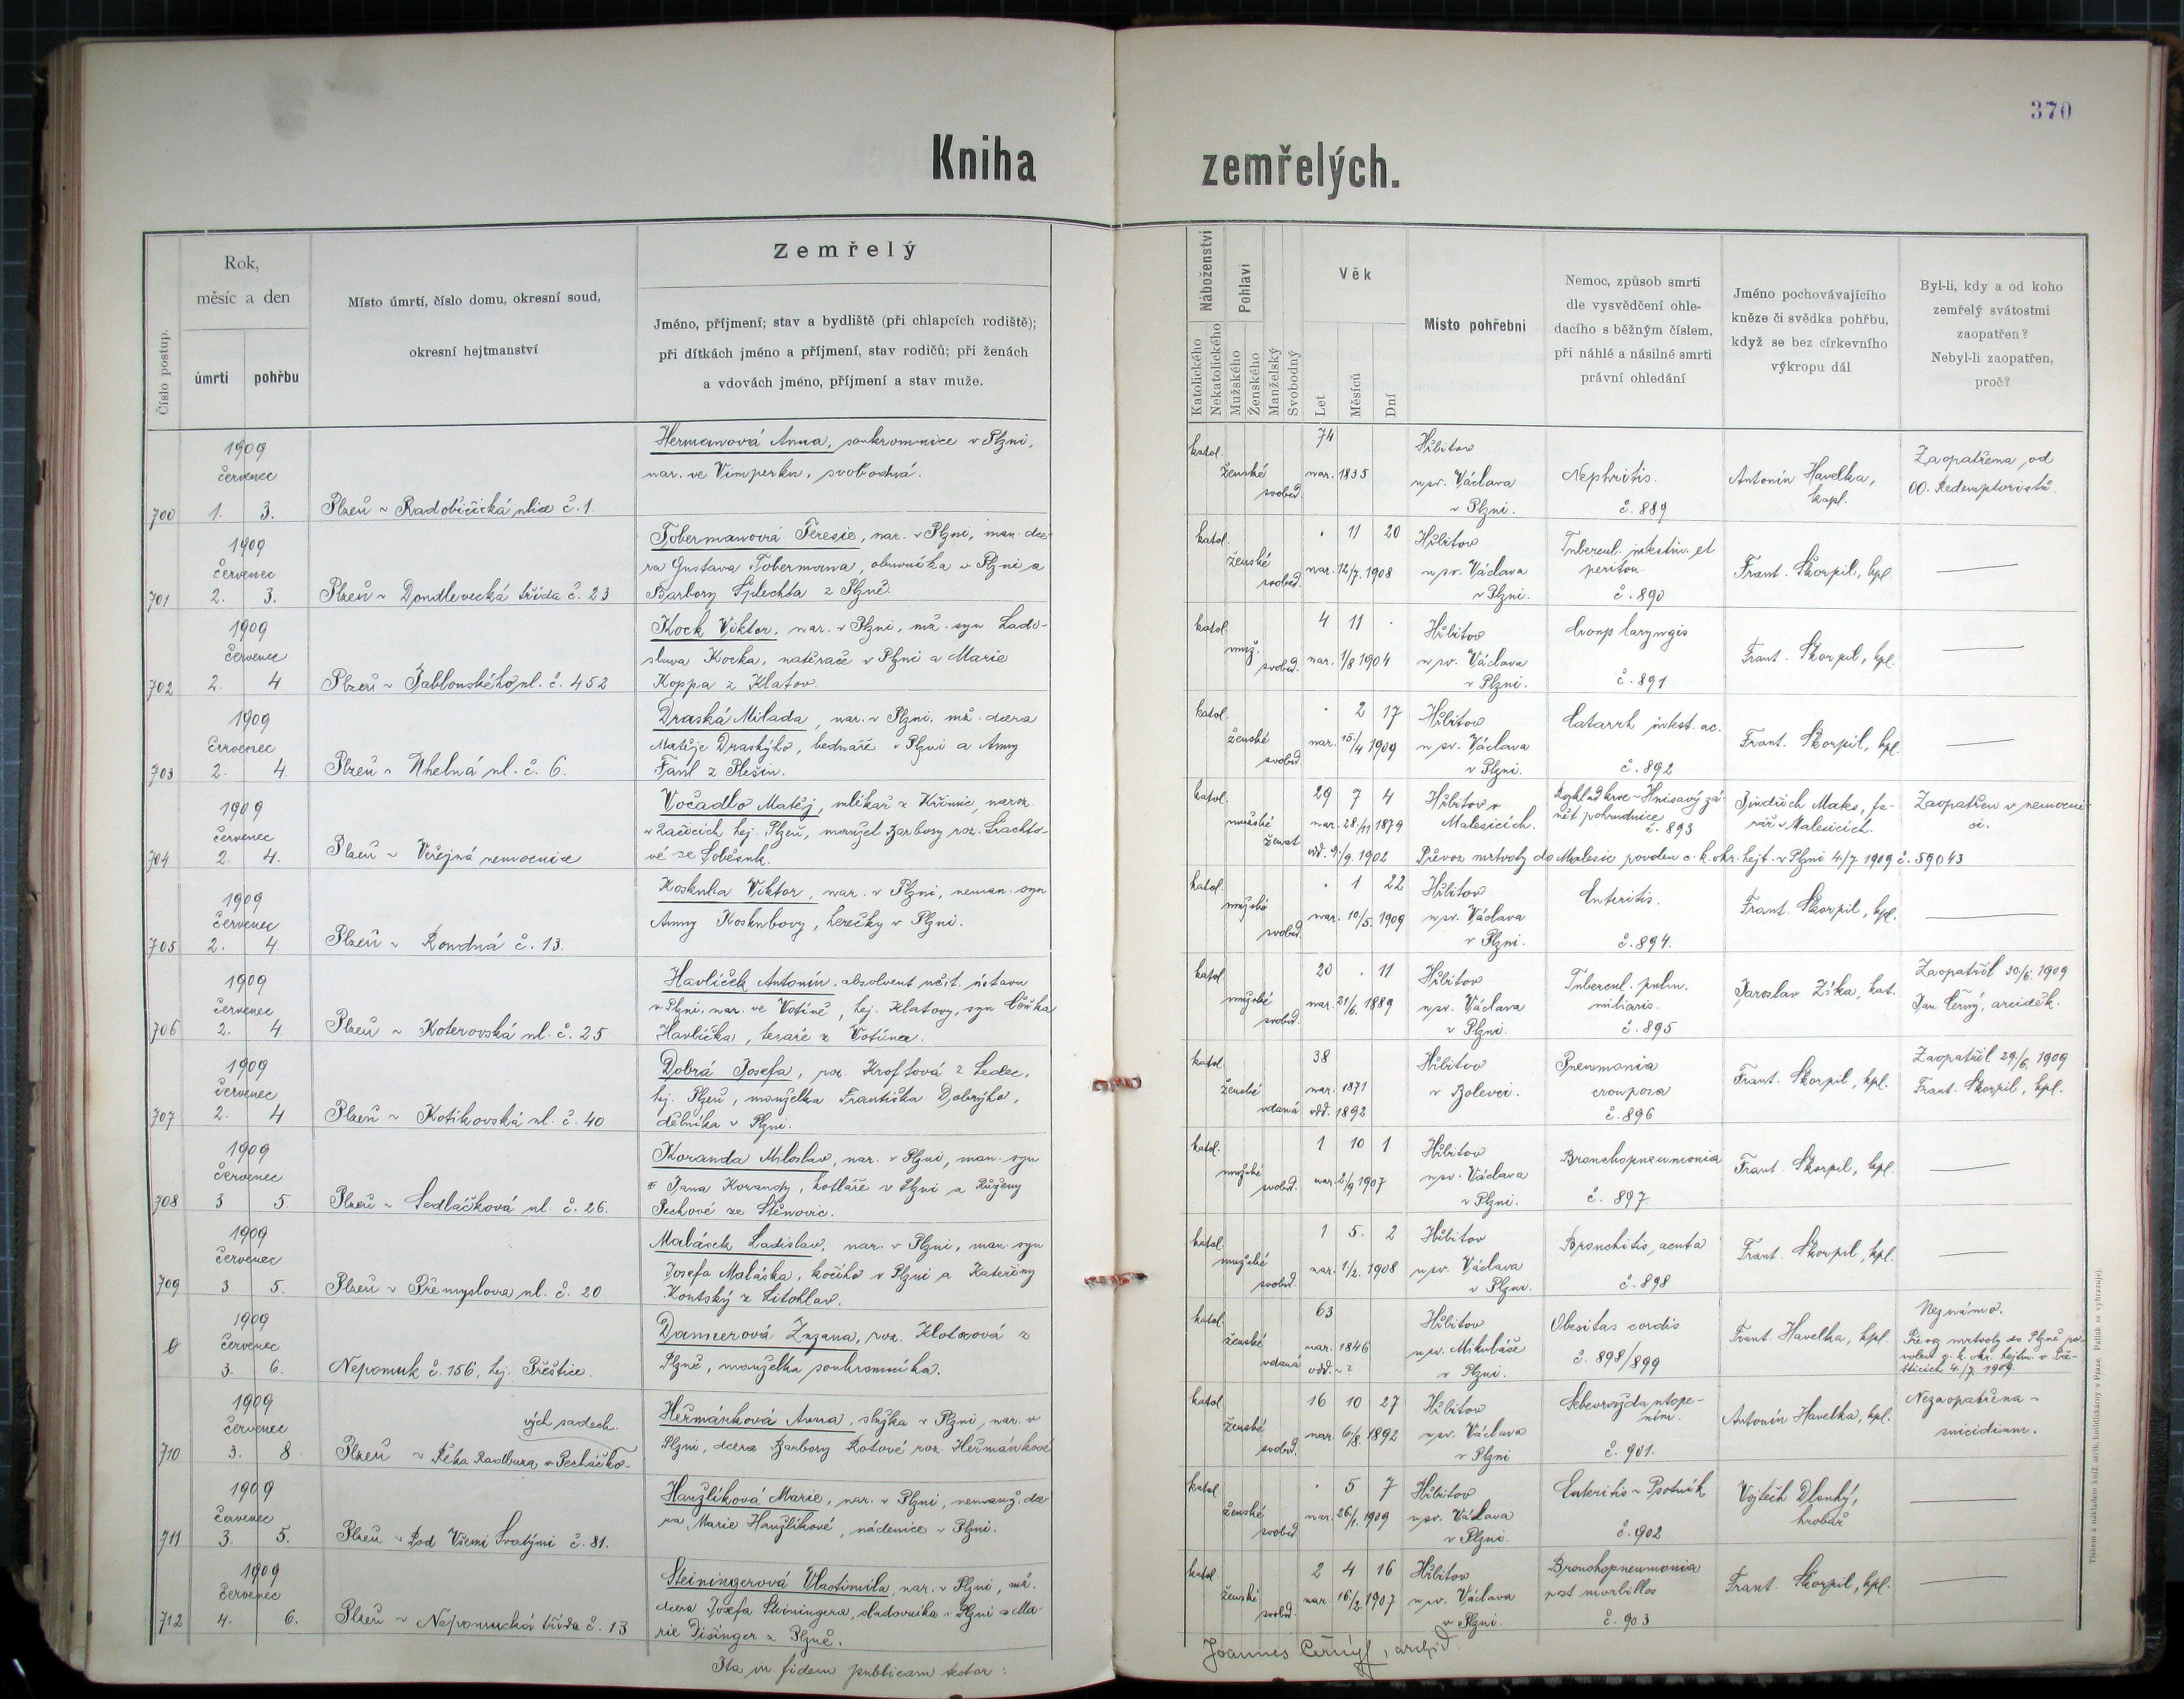 370
Kniha zemřelých.
Číslo postup.
Rok,
měsíc a den
úmrtí
pohřbu
Místo úmrtí, číslo domu, okresní soud,
okresní hejtmanství
Zemřelý
Jméno, příjmení; stav a bydliště (při chlapcích rodiště);
při dítkách jméno a příjmení, stav rodičů; při ženách
a vdovách jméno, příjmení a stav muže.
Náboženství
Katolického
Nekatolického
Pohlaví
Mužského
Ženského
Manželský
Svobodný
Věk
Let
Měsíců
Dní
Místo pohřební
Nemoc, způsob smrti
dle vysvědčení ohle-
dacího s běžným číslem,
při náhlé a násilné smrti
právní ohledání
Jméno pochovávajícího
kněze či svědka pohřbu,
když se bez církevního
výkropu dál
Byl-li, kdy a od koho
zemřelý svátostmi
zaopatřen?
Nebyl-li zaopatřen,
proč?
1909
červenec
700 1. 3.
Plzeň ~ Radobičická ulice č. 1
Hermanová Anna, soukromnice v Plzni,
nar. ve Vimperku, svobodná.
katol. ženské svobod.
74
nar. 1835
Hřbitov
u sv. Václava
v Plzni.
Nephritis.
č. 889
Antonín Havelka,
kapl.
Zaopatřena od
OO. Redemptoristů.
1909
červenec
701 2. 3.
Plzeň ~ Doudlevecká třída č. 23
Tobermanová Terezie, nar. v Plzni, man. dce-
ra Gustava Tobermana, obuvníka v Plzni a
Barbory Šplechta z Plzně.
katol. ženské svobod.
. 11 20
nar. 12/7. 1908
Hřbitov
u sv. Václava
v Plzni.
Tubercul. intestin. et
periton.
č. 890
Frant. Škorpil, kpl.
1909
červenec
702 2. 4
Plzeň ~ Jablonského ul. č. 452
Kock Viktor, nar. v Plzni, mž. syn Lado-
slava Kocka, natěrače v Plzni a Marie
Koppa z Klatov.
katol. muž. svobod.
4 11 .
nar. 1/8 1904
Hřbitov
u sv. Václava
v Plzni.
Croup laryngis
č. 891
Frant. Škorpil, kpl.
1909
červenec
703 2. 4.
Plzeň ~ Úhelná ul. č. 6.
Draská Milada, nar. v Plzni, mž. dcera
Matěje Draskýho, bednáře v Plzni a Anny
katol. ženské svobod.
. 2 17
nar. 15/4 1909
Hřbitov
u sv. Václava
v Plzni.
Catarrh intest. ac.
č. 892
Frant. Škorpil, kpl.
1909
červenec
704 2. 4.
Plzeň ~ Veřejná nemocnice
Vočadlo Matěj, mlékař z Křimic, naroz.
hej. Plzeň, manžel Barbory roz.
katol. mužské ženat
29 7 4
nar. 28/11 1879
odd. 9/9. 1902
Hřbitov v
Malesicích.
Rozklad krve - Hnisavý zá-
nět pohrudnice
č. 893
Jindřich Maks, fa-
rář v Malesicích.
Zaopatřen v nemocni-
ci.
Převoz mrtvoly do Malesic povolen c. k. okr. hejt. v Plzni 4/7 1909 č. 59043
1909
červenec
705 2. 4.
Plzeň ~ Roudná č. 13.
Koskuba Viktor, nar. v Plzni, neman. syn
Anny Koskubovy, herečky v Plzni.
katol. mužské svobod.
. 1 22
nar. 10/5. 1909
Hřbitov
u sv. Václava
v Plzni.
Enteritis.
č. 894.
Frant. Škorpil, kpl.
1909
červenec
706 2. 4.
Plzeň ~ Koterovská ul. č. 25
Havlíček Antonín, absolvent učit. ústavu
v Plzni, nar. ve Votíně, hej. Klatovy, syn Čeňka
Havlíčka, tesaře z Votína.
katol. mužské svobod.
20 . 11
nar. 21/6. 1889
Hřbitov
u sv. Václava
v Plzni.
Tubercul. pulm.
miliaris.
č. 895
Jaroslav Zíka, kat.
Zaopatřil 30/6. 1909
Jan Černý, arciděk.
1909
červenec
707 2. 4
Plzeň ~ Kotíkovská ul. č. 40
Dobrá Josefa, roz. Kroftová z Ledec,
hej. Plzeň, manželka Františka Dobrýho,
dělníka v Plzni.
katol. ženské vdaná
38
nar. 1871
odd. 1892
Hřbitov
v Bolevci.
Pneumonia
crouposa
č. 896
Frant. Škorpil, kpl.
Zaopatřil 29/6. 1909
Frant. Škorpil, kpl.
1909
červenec
708 3 5.
Plzeň ~ Sedláčková ul. č. 26.
Koranda Miloslav, nar. v Plzni, man. syn
Jana Korandy, kotláře v Plzni a Růženy
Pechové ze Štěnovic.
katol. mužské svobod.
1 10 1
nar. 2/9 1907
Hřbitov
u sv. Václava
v Plzni.
Bronchopneumonia
č. 897
Frant. Škorpil, kpl.
1909
červenec
709 3 5.
Plzeň ~ Přemyslova ul. č. 20
Malásek Ladislav, nar. v Plzni, man. syn
Josefa Maláska, kočího v Plzni a Kateřiny
Koutský z Litohlav.
katol. mužské svobod.
1 5. 2
nar. 1/2. 1908
Hřbitov
u sv. Václava
v Plzni.
Bronchitis acuta
č. 898
Frant. Škorpil, kpl.
1909
červenec
0 3. 6.
Nepomuk č. 156, hej. Přeštice.
Zuzana, roz. Klotzová z
Plzně, manželka soukromníka.
katol. ženské vdaná
63
nar. 1846
odd. ~ ?
Hřbitov
u sv. Mikuláše
v Plzni.
Obesitas cordis
č. 898/899
Frant Havelka, kpl.
Neznámo.
Převoz mrtvoly do Plzně po-
volen c. k. okr. hejtm. v Pře-
šticích 4./7. 1909.
1909
červenec
710 3. 8
vých sadech.
Plzeň ~ Řeka Radbuza v Pecháčko-
Heřmánková Anna, služka v Plzni, nar. v
Plzni, dcera Barbory Rotové roz. Heřmánkové
katol. ženské svobod.
16 10 27
nar. 6/8. 1892
Hřbitov
u sv. Václava
v Plzni
Sebevražda utope-
ním.
č. 901.
Antonín Havelka, kpl.
Nezaopatřena ~
suicidium.
1909
červenec
711 3. 5.
Plzeň ~ Pod Všemi Svatými č. 81.
Hanzlíková Marie, nar. v Plzni, nemanž. dce-
ra Marie Hanzlíkové, nádenice v Plzni.
katol. ženské svobod.
. 5 7
nar. 26/1. 1909
Hřbitov
u sv. Václava
v Plzni
Enteritis ~ Psotník
č. 902
Vojtěch Dlouhý,
hrobař
1909
červenec
712 4. 6.
Plzeň ~ Nepomucká třída č. 13
Steiningerová Vlastimila, nar. v Plzni, mž.
dcera Josefa Steiningera, sladovníka v Plzni a Ma-
rie Disinger z Plzně.
katol. ženské svobod.
2 4 16
nar. 16/2. 1907
Hřbitov
u sv. Václava
v Plzni.
Bronchopneumonia
post morbillos
č. 903
Frant. Škorpil, kpl.
Ita in fidem publicam testor:
Joannes Černý, archid.